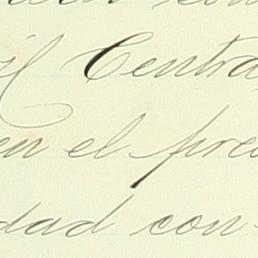 il Central
en el pre
dad con-